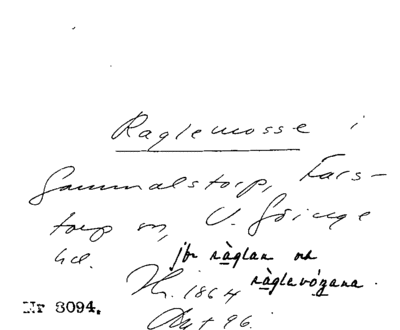 Raglemosse i
Gammalstorp, Fars-
torp sn, V. Göinge
hd. jfr ràglan
ràglevógana.
Hr. 1864
Nr 3094.